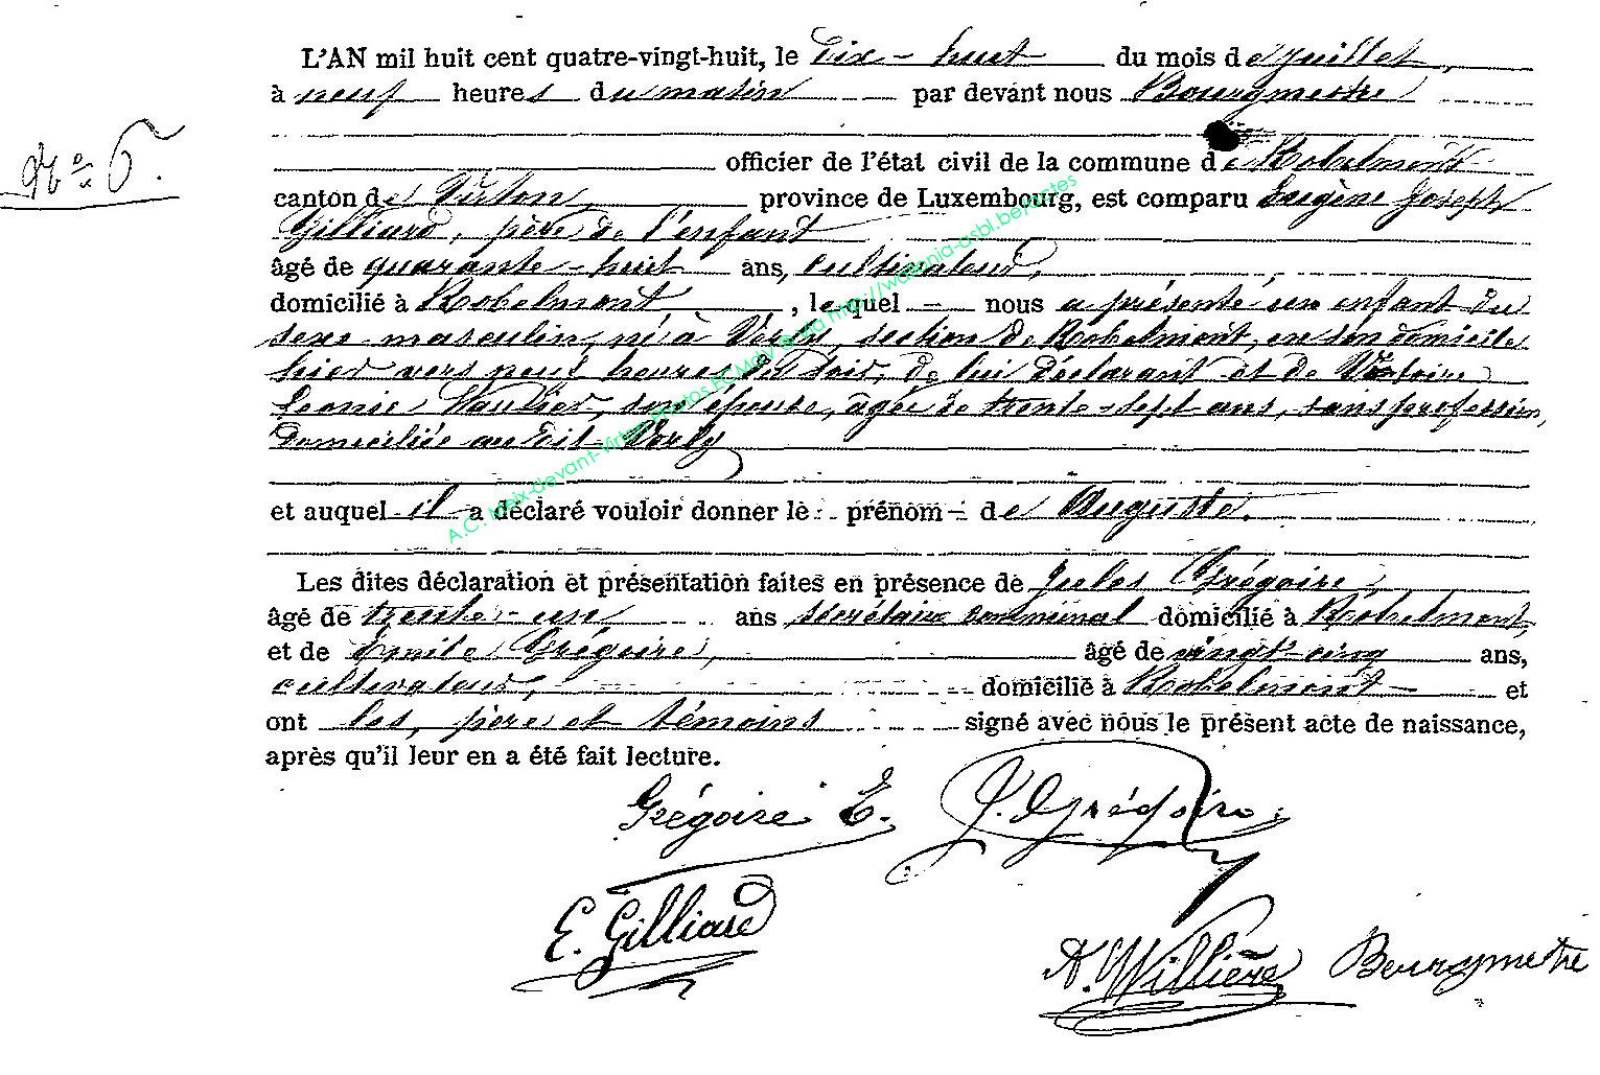 L'AN mil huit cent quatre-vingt-huit, le Dix-huit du mois de juillet,
à neuf heures du matin par devant nous Bourgmestre
N° 6.
officier de l'état civil de la commune de Robelmont
canton de Virton, province de Luxembourg, est comparu Eugène Joseph
Gilliard, père de l'enfant
âgé de quarante-huit ans, cultivateur,
domicilié à Robelmont, lequel nous a présenté un enfant du
sexe masculin, né à section de Robelmont, en son domicile
hier vers neuf heures du soir, de lui déclarant et de
Leonie son épouse, âgée de trente-sept ans, sans profession,
domiciliée au dit
et auquel il a déclaré vouloir donner le prénom de Auguste.
Les dites déclaration et présentation faites en présence de Jules Grégoire,
âgé de trente-un ans secrétaire communal domicilié à Robelmont,
et de Emile Grégoire, âgé de vingt-cinq ans,
cultivateur, domicilié à Robelmont et
ont les, père et témoins signé avec nous le présent acte de naissance,
après qu'il leur en a été fait lecture.
Grégoire E. J. Grégoire
E. Gilliard
A. Willière Bourgmestre
A.C. Meix-devant-Virton Photos EC MdV @ via http://wallonia-asbl.be/actes